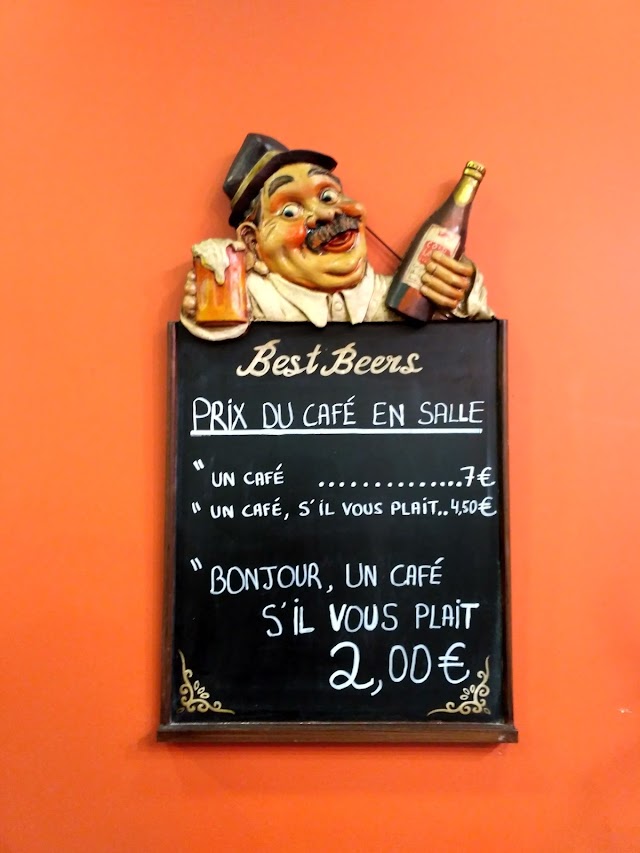 Best Beers
PRIX DU CAFÉ EN SALLE
" UN CAFÉ ..............7€
" UN CAFÉ, S'IL VOUS PLAIT..4,50€
" BONJOUR, UN CAFÉ
S'IL VOUS PLAIT
2,00€